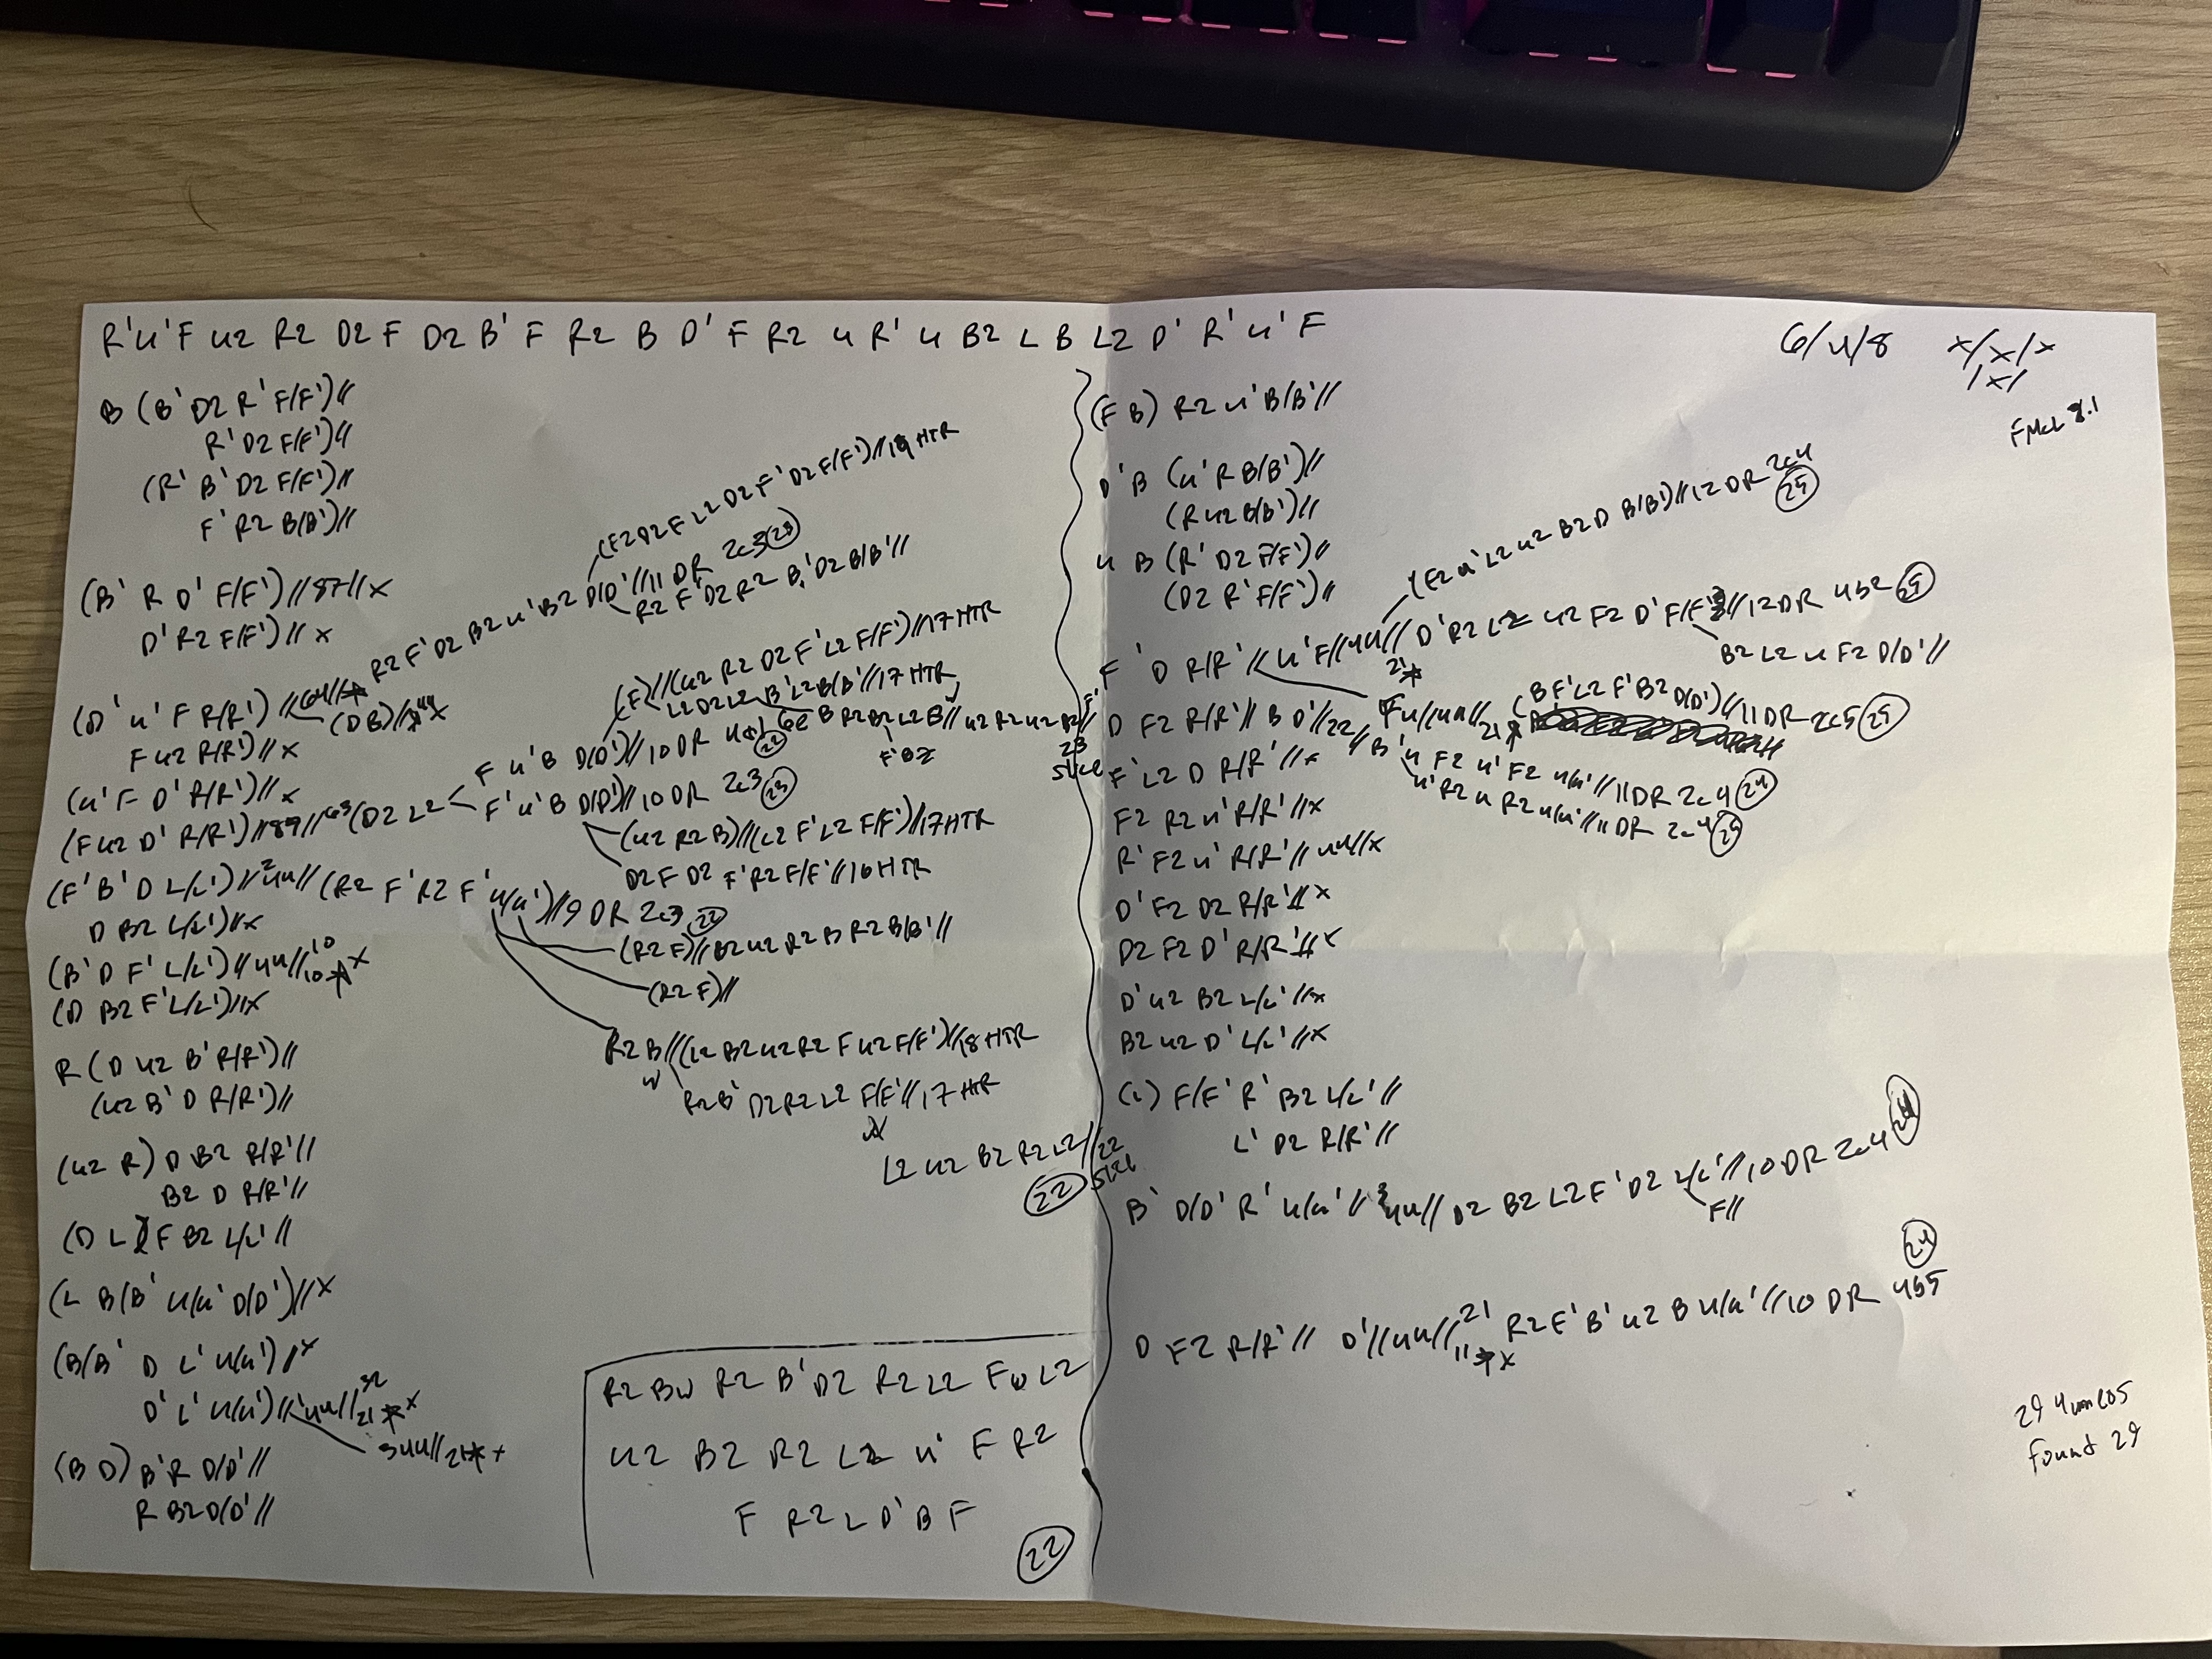 R'U'F U2 R2 D2 F D2 B' F R2 B D' F R2 U R' U B2 L B L2 D' R' U' F
6/4/8 x/x/x
/x/
B (B' D2 R' F/F')//
R' D2 F/F')//
(R' B' D2 F/F')//
F' R2 B/B')//
(B' R D' F/F')//87//x
D' R2 F/F')//x
(D' U' F R/R')//64//* R2 F' D2 B2 U' B2 D/D'//11 DR 2c3 (28)
(F2 D2 F L2 D2 F' D2 F/F')//19 HTR
R2 F' D2 R2 B' D2 B/B'//
(D B)//
F U2 R/R')//x
(U' F D' R/R')//x
(F U2 D' R/R')//89//63(D2 L2
F U' B D/D')//10 DR (22)
(F)//(U2 R2 D2 F' L2 F/F')//17 HTR
L2 D2 L2 B' L2 B/B'//17 HTR
B R2 B2 L2 B// U2 R2 U2 R2//
23
slice
F' U' B D/D')//10 DR 2c3 (23)
(U2 R2 B)//(L2 F' L2 F/F')//17 HTR
D2 F D2 F' R2 F/F'//16 HTR
(F' B' D L/L')//2 4U//(R2 F' R2 F' U/U')//9 DR 2c3 (22)
D B2 L/L')//x
(R2 F)//B2 U2 R2 B R2 B/B'//
(B' D F' L/L')//4U//10 10 * x
(R2 F)//
(D B2 F' L/L')//x
R2 B//(L2 B2 U2 R2 F U2 F/F')//18 HTR
w
R (D U2 B' R/R')//
(U2 B' D R/R')//
R2 B' D2 R2 L2 F/F'//17 HTR
w
(U2 R) D B2 R/R'//
B2 D R/R'//
L2 U2 B2 R2 L2//22
slice
(22)
(D L) F B2 L/L'//
(L B/B' U/U' D/D')//x
(B/B' D L' U/U')//x
D' L' U/U')//4U//32 21 * x
34U//21 * x
(B D) B' R D/D'//
R B2 D/D'//
R2 Bw R2 B' D2 R2 L2 Fw L2
U2 B2 R2 L2 U' F R2
F R2 L D' B F
(22)
(F B) R2 U' B/B'//
D' B (U' R B/B')//
(R U2 B/B')//
U B (R' D2 F/F')//
(D2 R' F/F')//
F' D R/R'// U' F//4U// 21*
(F2 U' L2 U2 B2 D B/B')//12 DR 2c4 (25)
D' R2 L2 U2 F2 D' F/F'//12 DR 4b2 (25)
B2 L2 U F2 D/D'//
F U//4U// 21* (B F' L2 F' B2 D/D')//11 DR 2c5 (25)
D F2 R/R'// B D'//22// B' U F2 U' F2 U/U'//11 DR 2c4 (24)
U' R2 U R2 U/U'//11 DR 2c4 (25)
F' L2 D R/R'//x
F2 R2 U' R/R'//x
R' F2 U' R/R'//4U//x
D' F2 D2 R/R'//x
D2 F2 D' R/R'//x
D' U2 B2 L/L'//x
B2 U2 D' L/L'//x
(L) F/F' R' B2 L/L'//
L' D2 R/R'//
B' D/D' R' U/U'//34U// D2 B2 L2 F' D2 L/L'//10 DR 2c4 (24)
F//
D F2 R/R'// D'//4U//21 11 * x R2 F' B' U2 B U/U'//10 DR 4b5 (24)
found 29